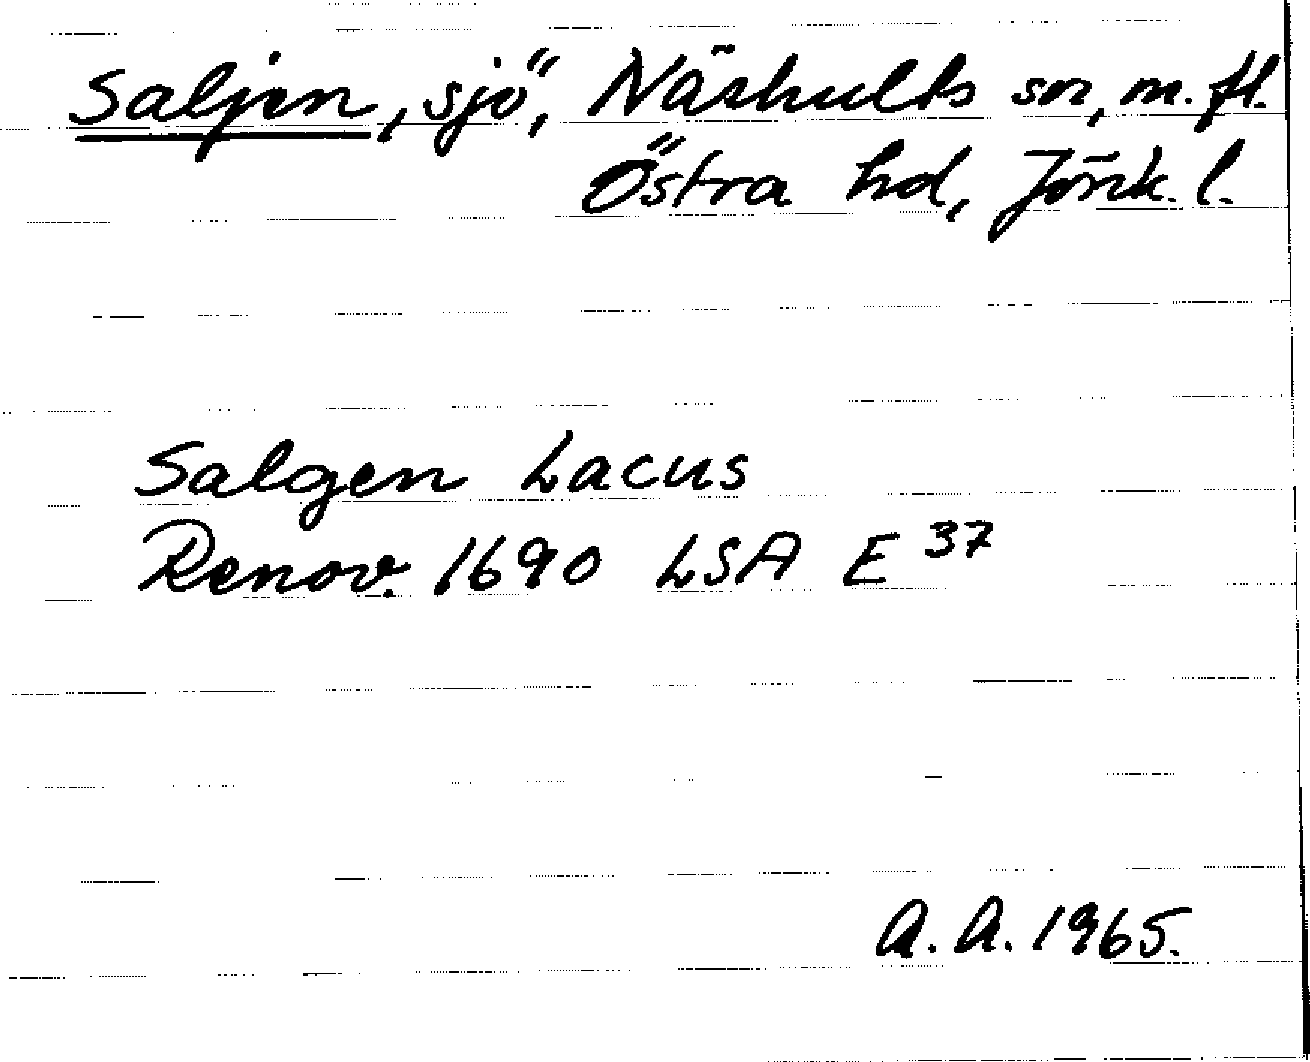 Saljen, sjö, Näshults sn, m.fl.
Östra hd, Jönk. l.
Salgen Lacus
Renov. 1690 LSA E 37
A. A. 1965.